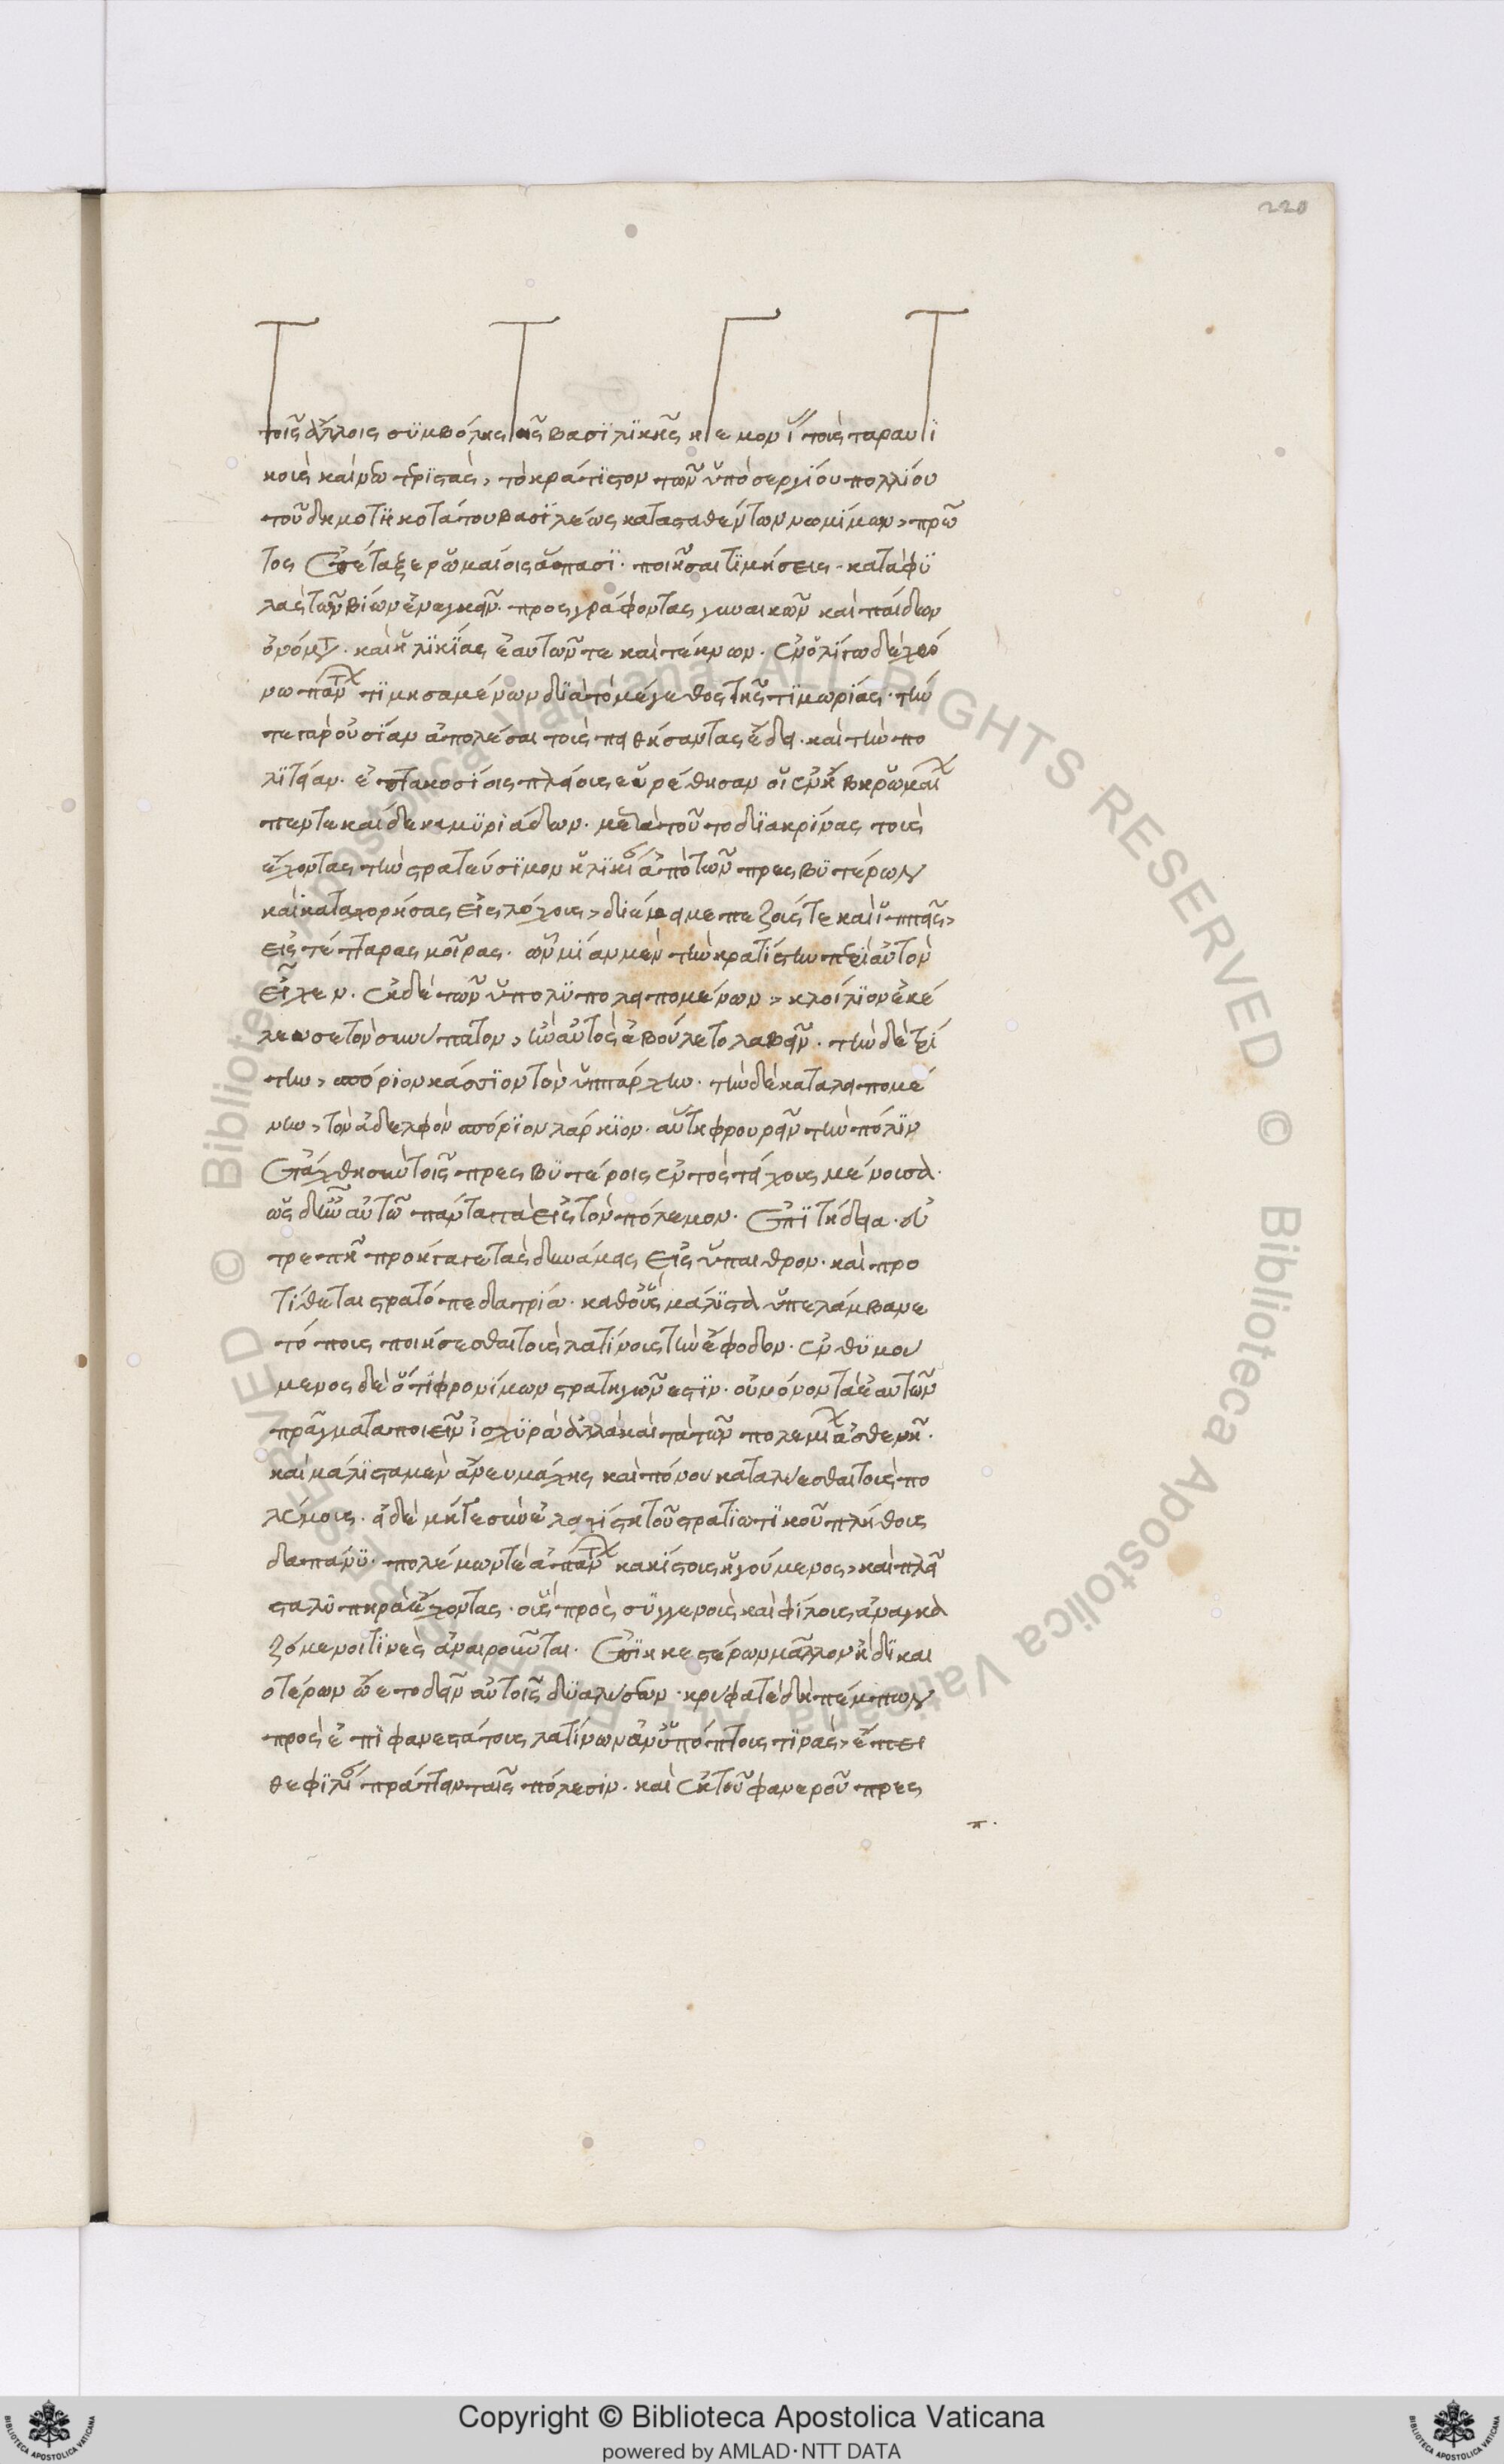 220
τοῖς ἄλλοις συμβόλης τῆς βασιλικῆς ἡγεμονί τοὺς ταραυτι
κοὺς καὶ νεωτεριστὰς, τὸ κράτιστον τῶν ὑπὸ σεργίου πολλίου
τοῦ δημοτηκοτάτου βασιλέως κατασταθέντων νωμίμων, πρῶ
τος ἐπέταξε ρωμαίοις ἅπασι. ποιῆσαι τιμήσεις. κατὰ φυ
λὰς τῶν βίων ἐνεγκεῖν. προσγράφοντας γυναικῶν καὶ παίδων
ὀνόμτ. καὶ ἡλικίας ἑαυτῶν τε καὶ τέκνων. ἐν ὀλίγω δὲ χρό
νω πάντ τιμησαμένων διὰ τὸ μέγεθος τῆς τιμωρίας. τήν
τε γὰρ οὐσίαν ἀπολέσαι τοὺς ἀπειθήσαντας ἔδει. καὶ τὴν πο
λιτείαν. ἑπτακοσίοις πλείους εὑρέθησαν οἱ ἐν ἥβη ρωμαῖ
πέντε καίδεκα μυριάδων. μετὰ τοῦτο διακρίνας τοὺς
ἔχοντας τὴν στρατεύσιμον ἡλικί ἀπὸ τῶν πρεσβυτέρων
καὶ καταχορήσας εἰς λόχους, διένειμε πεζούς τε καὶ ἱππεῖς,
εἰς τέτταρας μοίρας. ὧν μίαν μὲν τὴν κρατίστην περὶ αὐτὸν
εἶχεν. ἐκ δὲ τῶν ὑπολυπολειπομένων, κλοίλιον ἐκέ
λευσε τὸν συνύπατον, ἣν αὐτὸς ἐβούλετο λαβεῖν. τὴν δὲ τρί
την, σπόριον κάσσιον τὸν ἱππάρχην. τὴν δὲ καταλειπομέ
νην, τὸν ἀδελφὸν σπόριον λάρκιον. αὕτη φρουρεῖν τὴν πόλιν
ἐτάχθη σὺν τοῖς πρεσβυτέροις ἐντὸς τείχους μένουσα.
ὡς δ' ἦν αὐτῶ πάντα τὰ εἰς τὸν πόλεμον. ἐπιτήδεια. εὐ
τρεπῆ προῆγαγε τὰς δυνάμεις εἰς ὕπαιθρον. καὶ προ
τίθεται στρατόπεδα τρία. καθ' οὓς μάλιστα ὑπελάμβανε
τόπους ποιήσεσθαι τοὺς λατίνους τὴν ἔφοδον. ἐνθυμού
μενος δὲ ὅτι φρονίμων στρατηγῶν ἐστὶν. οὐ μόνον τὰ ἑαυτῶν
πράγματα ποιεῖν ἰσχυρὰ ἀλλὰ καὶ τὰ τῶν πολεμί ἀσθενῆ.
καὶ μάλιστα μὲν ἄνευ μάχης καὶ πόνου καταλύεσθαι τοὺς πο
λέμους. εἰ δὲ μήγε σὺν ἐλαχίστη τοῦ στρατιωτικοῦ πλήθους
δαπάνῃ. πολέμων τε ἁπάντ κακίστους ἡγούμενος, καὶ πλεῖ
στα λυπηρὰ ἔχοντας. οὓς πρὸς συγγενοὺς καὶ φίλους ἀναγκα
ζόμενοι τινὲς ἀναιροῦνται. ἐπιικεστέρων μᾶλλον ἢ δικαι
οτέρων ὤετο δεῖν αὐτοῖς διαλύσεων. κρύφα τὲ δὴ πέμπων
πρὸς ἐπιφανεστάτους λατίνων ἀνυπόπτους τινὰς, ἔπει
θε φιλί πράττειν ταῖς πόλεσιν. καὶ ἐκ τοῦ φανεροῦ πρεσ